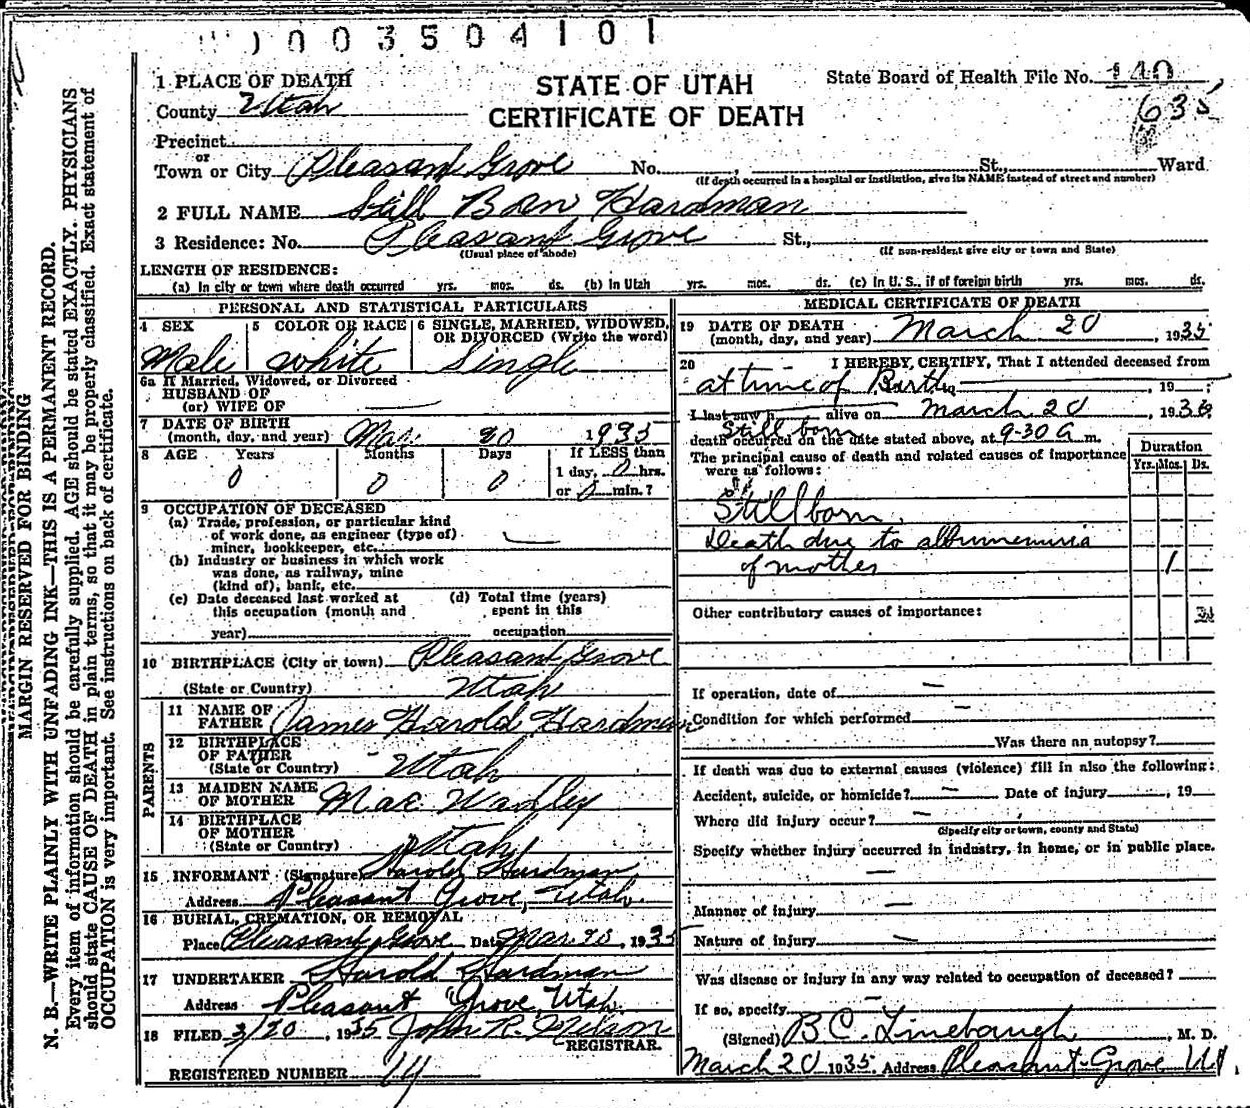 0 0 3 5 0 4 1 0 1
1 PLACE OF DEATH
STATE OF UTAH
CERTIFICATE OF DEATH
State Board of Health File No. 140
635
County Utah
Precinct
or
Town or City Pleasant Grove No. , St., Ward
(If death occurred in a hospital or institution, give its NAME instead of street and number)
2 FULL NAME Still Born Hardman
3 Residence: No. Pleasant Grove St.,
(Usual place of abode) (If non-resident give city or town and State)
LENGTH OF RESIDENCE:
(a) In city or town where death occurred yrs. mos. ds. (b) In Utah yrs. mos. ds. (c) In U. S., if of foreign birth yrs. mos. ds.
PERSONAL AND STATISTICAL PARTICULARS
4 SEX
Male
5 COLOR OR RACE
White
6 SINGLE, MARRIED, WIDOWED,
OR DIVORCED (Write the word)
Single
6a If Married, Widowed, or Divorced
HUSBAND OF
(or) WIFE OF
7 DATE OF BIRTH
(month, day, and year) Mar. 20 1935
8 AGE Years Months Days If LESS than
1 day, 0 hrs.
0 0 0 or 0 min.?
9 OCCUPATION OF DECEASED
(a) Trade, profession, or particular kind
of work done, as engineer (type of)
miner, bookkeeper, etc.
(b) Industry or business in which work
was done, as railway, mine
(kind of), bank, etc.
(c) Date deceased last worked at
this occupation (month and
year)
(d) Total time (years)
spent in this
occupation
10 BIRTHPLACE (City or town) Pleasant Grove
(State or Country) Utah
PARENTS
11 NAME OF
FATHER James Harold Hardman
12 BIRTHPLACE
OF FATHER
(State or Country) Utah
13 MAIDEN NAME
OF MOTHER Mae Wadley
14 BIRTHPLACE
OF MOTHER
(State or Country) Utah
15 INFORMANT (Signature) Harold Hardman
Address Pleasant Grove, Utah.
16 BURIAL, CREMATION, OR REMOVAL
Place Pleasant Grove Date Mar. 20, 1935
17 UNDERTAKER Harold Hardman
Address Pleasant Grove, Utah.
18 FILED 3/20, 1935 John R. Nelson
REGISTRAR.
REGISTERED NUMBER 14
MEDICAL CERTIFICATE OF DEATH
19 DATE OF DEATH
(month, day, and year) March 20, 1935
20 I HEREBY CERTIFY, That I attended deceased from
at time of Birth, 19 ;
I last saw h alive on March 20, 1936
Still born
death occurred on the date stated above, at 9-30 a m.
The principal cause of death and related causes of importance
were as follows:
Duration
Yrs. Mos. Ds.
Stillborn.
Death due to albumenuria
of mother 1
Other contributory causes of importance:
If operation, date of
Condition for which performed
Was there an autopsy?
If death was due to external causes (violence) fill in also the following:
Accident, suicide, or homicide? Date of injury , 19
Where did injury occur?
(Specify city or town, county and State)
Specify whether injury occurred in industry, in home, or in public place.
Manner of injury
Nature of injury
Was disease or injury in any way related to occupation of deceased?
If so, specify
(Signed) B C. Linebaugh, M. D.
March 20 1935. Address Pleasant Grove Ut.
MARGIN RESERVED FOR BINDING
N. B.—WRITE PLAINLY WITH UNFADING INK—THIS IS A PERMANENT RECORD.
Every item of information should be carefully supplied. AGE should be stated EXACTLY. PHYSICIANS
should state CAUSE OF DEATH in plain terms, so that it may be properly classified. Exact statement of
OCCUPATION is very important. See instructions on back of certificate.